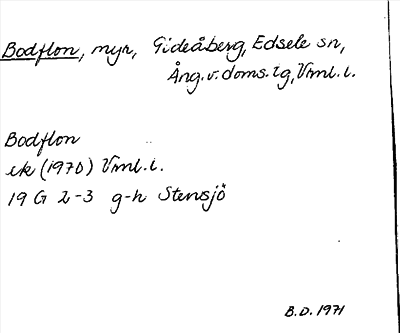 Bodflon, myr, Gideåberg, Edsele sn,
Ång. v. doms. tg, Vrml. l.
Bodflon
ek (1970) Vrml. l.
19 G 2-3 g-h Stensjö
B.D. 1971